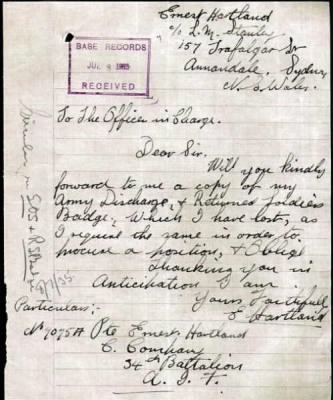 Ernest Hartland
c/o L. M.
157 Trafalgar St
Annandale, Sydney
N. S. Wales.
BASE RECORDS
JUL 1935
RECEIVED
To The Officer in Charge.
Dear Sir.
Will you kindly
forward to me a copy of my
Army Discharge, & Returned Soldiers
Badge, which I have lost, as
I require the same in order to
procure a position, & Oblige
Thanking you in
Anticipation I am
Yours Faithfull
E Hartland
Particulars:-
No 7075A Pte Ernest Hartland
C. Company
34th Battalion
A. I. F.